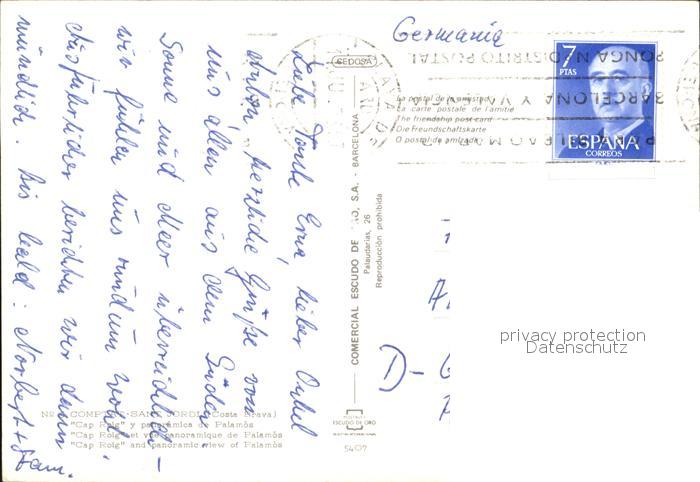 Germania
7
PTAS
ESPAÑA
CORREOS
PONGA N DISTRITO POSTAL
BARCELONA Y V
CEDOSA
La postal de la amistad
La carte postale de l'amitié
The friendship post card
Die Freundschaftskarte
O postal de amizade
Liebe Tante Erna, lieber Onkel
herzliche Grüße von
uns allen aus dem Süden.
Sonne und Meer überreichlich -
wir fühlen uns rundum wohl!
Ausführlicher berichten wir dann
mündlich. Bis bald: Norbert + Fam.
COMERCIAL ESCUDO DE ORO, S.A. - BARCELONA
Palaudarias, 26
Reproducción prohibida
D-
privacy protection
Datenschutz
SANT JORDI (Costa Brava)
"Cap Roig" y panorámica de Palamós
"Cap Roig" et vue panoramique de Palamós
"Cap Roig" and panoramic view of Palamós
ESCUDO DE ORO
5407